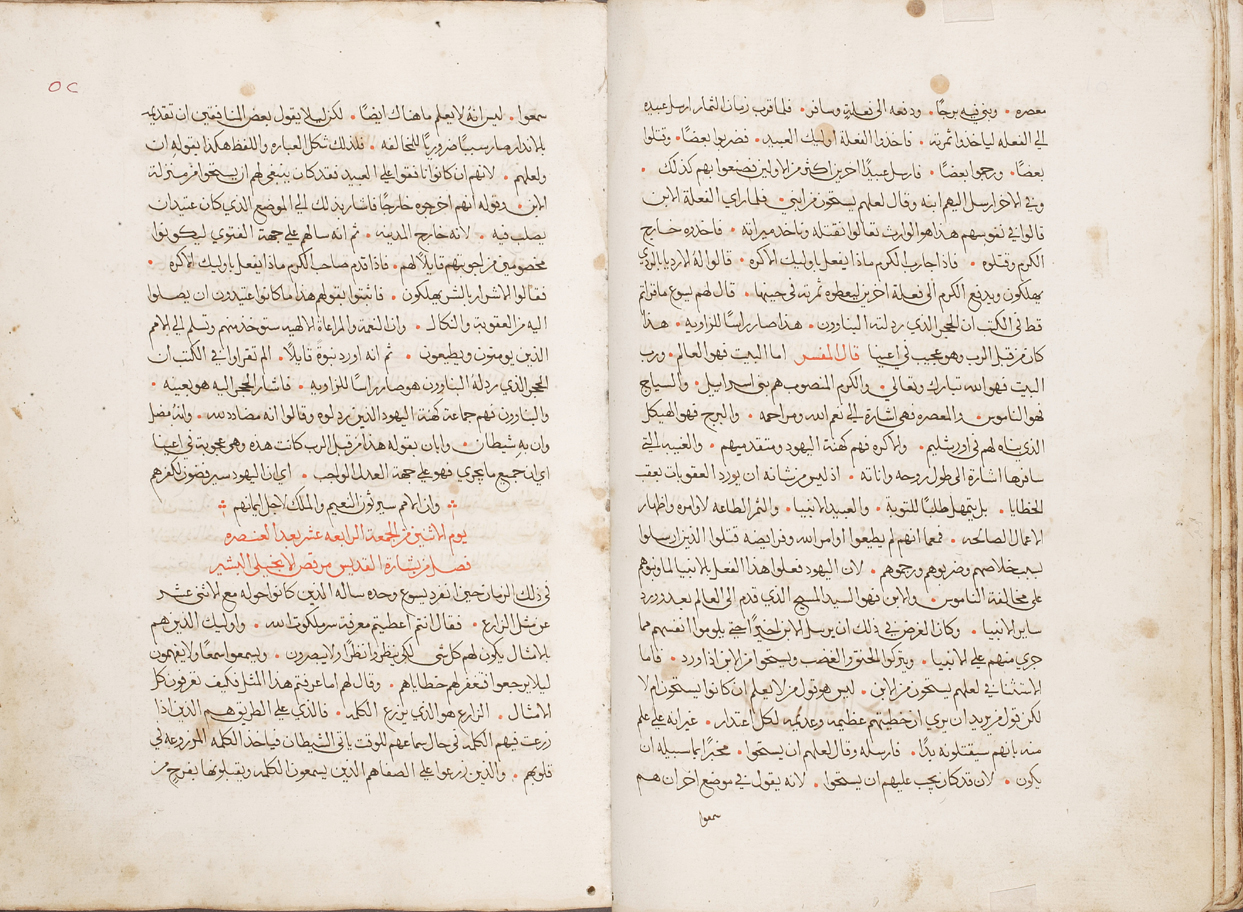 معصره • وبنى فيه برجًا • ودفعه الى فعلةٍ وسافر • فلما قرب زمان الثمار ارسل عبيده
الي الفعله لياخذوا ثمرته • فاخذوا الفعلة اوليك العبيد • فضربوا بعضًا • وقتلوا
بعضًا • ورجموا بعضًا • فارسل عبيدًا اخرين اكثر من الاولين فصنعوا بهم كذلك •
وفي الاخر ارسل اليهم ابنه وقال لعلهم يستحون من ابني • فلما راي الفعلة الابن
قالوا في نفوسهم هذا هو الوارث تعالوا نقتله وناخد ميراثه • فاخذوه خارج
الكرم وقتلوه • فاذا جا رب الكرم ماذا يفعل باوليك الاكره • قالوا له الارديا بالردي
يهلكون ويدفع الكرم الى فعلة اخرين ليعطوه ثمرته في حينها • قال لهم يسوع ما قراتم
قط في الكتب ان الحجر الذي رذلته البناوون • هذا صار راسًا للزاويه • هذا
كان من قبل الرب وهو عجيب في اعيننا قال المفسر اما البيت فهو العالم • ورب
البيت فهو الله تبارك وتعالى • والكرم المنصوب هم بني اسراييل • والسياج
فهو الناموس • والمعصره فهي اشارة الي نعم الله ومراحمه • والبرج فهو الهيكل
الذي بناه لهم في اورشليم • والاكره فهم كهنة اليهود ومتقدميهم • والغيبه التي
سافرها اشارة الى طول روحه واناته • اذ ليس من شانه ان يورد العقوبات بعقب
الخطايا • بل يتمهل طلبًا للتوبة • والعبيد الانبيا • والثمر الطاعه لاوامره واظهار
الاعمال الصالحه • فمعما انهم لم يطيعوا اوامر الله وفرايضه قتلوا الذين ارسلوا
بسبب خلاصهم وضربوهم ورجموهم • لان اليهود فعلوا هذا الفعل بالانبيا لما وبخوهم
على مخالفة الناموس • والابن فهو السيد المسيح الذي قدم الى العالم بعد ورود
ساير الانبيا • وكان الغرض في ذلك ان يرسل الابن اخيرًا حتى يلوموا انفسهم مما
جري منهم على الانبيا • ويتركوا الحنق والغضب ويستحوا من الابن اذا ورد • فاما
الاستثنا في لعلهم يستحون من الابن • ليس هو قول من لا يعلم ان كانوا يستحون ام لا
لكن قول من يريد ان يري ان خطيتهم عظيمه وعديمه لكل اعتذار • غير انه على علم
منه بانهم سيقتلونه بدًا • فارسله وقال لعلهم ان يستحوا • مخبرًا بما سبيله ان
يكون • لان قد كان يجب عليهم ان يستحوا • لانه يقول في موضع اخر ان هم
سمعوا
٥٢
سمعوا • ليس انه لا يعلم ما هناك ايضًا • لكن ليلا يقول بعض المنافقين ان تقديمه
بالانذار صار سببًا ضروريًا للمخالفه • فلذلك شكل العباره واللفظ هكذا بقوله ان
ولعلهم • لانهم ان كانوا نافقوا على العبيد فقد كان ينبغي لهم ان يستحوا من منزلة
الابن • وقوله انهم اخرجوه خارجًا فاشار بذلك الي الموضع الذي كان عتيدان
يصلب فيه • لانه خارج المدينه • ثم انه سالهم على جهة الفتوي ليكونوا
مخصومين من اجوبتهم قايلاً لهم • فاذا قدم صاحب الكرم ماذا يفعل باوليك الاكره •
فقالوا الاشرار بالشر يهلكون • فاثبتوا بقولهم هذا ما كانوا عتيدون ان يصلوا
اليه من العقوبة والنكال • وان النعمة والمراعاة الالهيه ستوخذ منهم وتسلم الي الامم
الذين يومنون ويطيعون • ثم انه اورد نبوة قايلاً • الم تقراوا في الكتب ان
الحجر الذي رذلة البناوون هو صار راسًا للزاويه • فاشار بالحجر اليه هو بعينه •
والبناوون فهم جماعة كهنة اليهود الذين رذلوه وقالوا انه مضاد لله • وانه مضل
وان به شيطان • وابان بقوله هذا من قبل الرب كانت هذه وهي عجوبة في اعيننا
اي ان جميع ما يجري فهو على جهة العدل الواجب • اي ان اليهود سيرفضون لكفرهم
وان الامم سيرثون النعيم والملك لاجل ايمانهم
يوم الاثنين من الجمعة الرابعه عشر بعد العنصره
فصل من بشارة القديس مرقص الانجيلي البشير
في ذلك الزمان حين انفرد يسوع وحده ساله الذين كانوا حوله مع الاثني عشر
عن مثل الزارع • فقال انتم اعطيتم معرفة سر ملكوت الله • واوليك الذين هم
بالامثال يكون لهم كل شي لكي ينظروا نظرًا ولا يبصرون • ويسمعوا سمعًا ولا يفهمون
ليلا يرجعوا فتغفر لهم خطاياهم • وقال لهم اما عرفتم هذا المثل فكيف تعرفون كل
الامثال • الزارع هو الذي يزرع الكلمه • فالذي على الطريق هم الذين اذا
زرعت فيهم الكلمه في حال سماعهم للوقت ياتي الشيطان فياخذ الكلمه المزروعه في
قلوبهم • والذين زرعوا على الصفا هم الذين يسمعون الكلمه ويقبلونها بفرح من